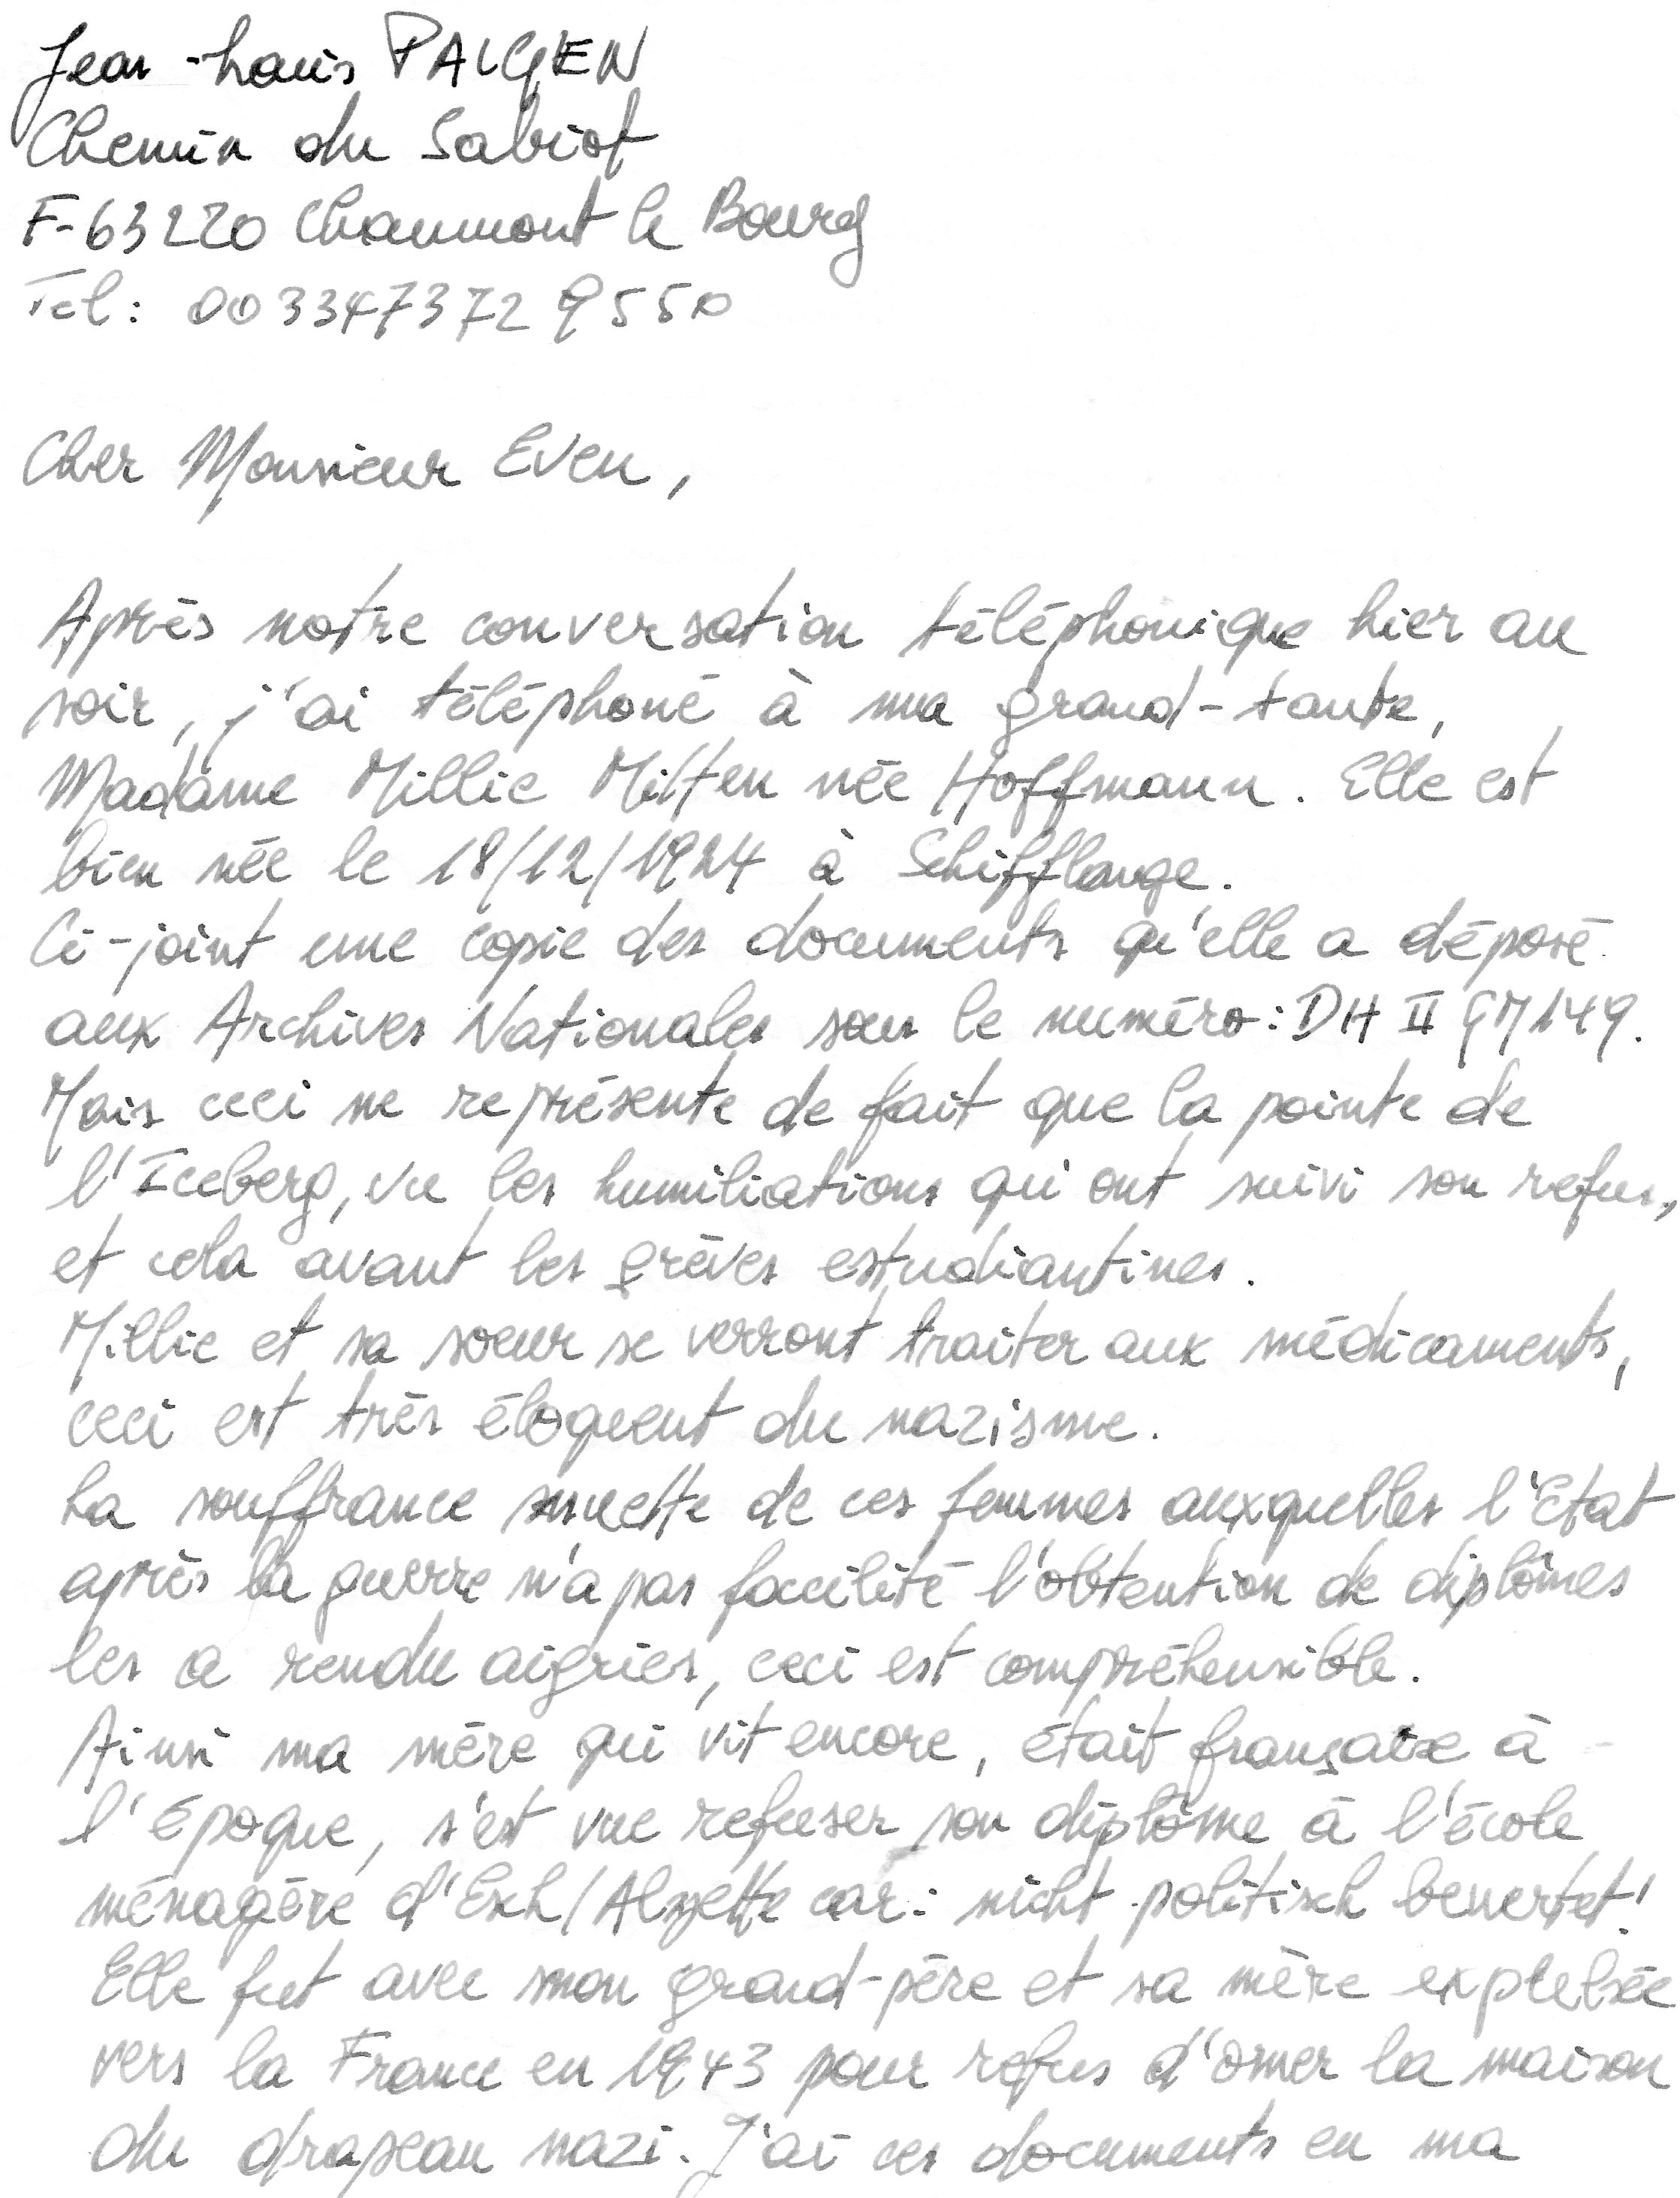 Jean-Louis PALGEN
Chemin du Sabiot
F-63220 Chaumont le Bourg
Tél: 0033473729550
Cher Monsieur Even,
Après notre conversation téléphonique hier au
soir, j'ai téléphoné à ma grand-tante,
Madame Millie Mitten née Hoffmann. Elle est
bien née le 18/12/1924 à Schifflange.
Ci-joint une copie des documents qu'elle a déposé
aux Archives Nationales sous le numéro: DH II
Mais ceci ne représente de fait que la pointe de
l'Iceberg, vu les humiliations qui ont suivi son refus,
et cela avant les grèves estudiantines.
Millie et sa soeur se verront traiter aux médicaments,
ceci est très éloquent du nazisme.
La souffrance muette de ces femmes auxquelles l'Etat
après la guerre n'a pas facilité l'obtention de diplômes
les a rendu aigries, ceci est compréhensible.
Ainsi ma mère qui vit encore, était française à
l'époque, s'est vue refuser son diplôme à l'école
ménagère d'Esch/Alzette car: nicht politisch bewertet!
Elle fut avec mon grand-père et sa mère expulsée
vers la France en 1943 pour refus d'orner la maison
du drapeau nazi. J'ai ces documents en ma